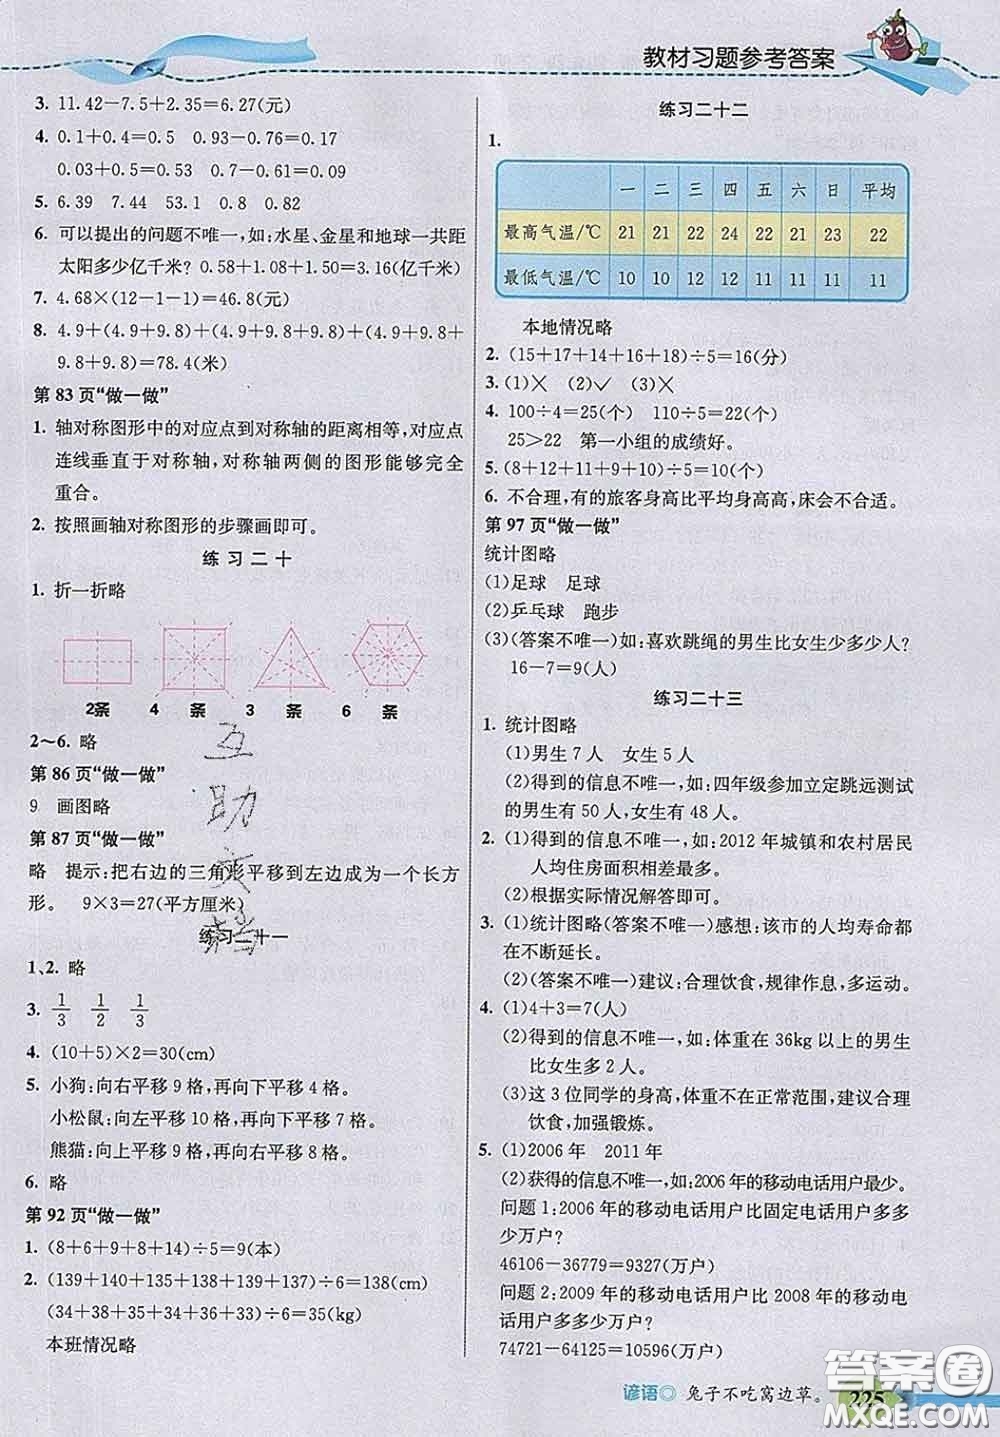 教材习题参考答案
3. 11.42-7.5+2.35=6.27(元)
4. 0.1+0.4=0.5 0.93-0.76=0.17
0.03+0.5=0.53 0.21+0.6=0.81
5. 6.39 7.44 53.1 0.8 0.82
6. 可以提出的问题不唯一,如:水星、金星和地球一共距
太阳多少亿千米? 0.58+1.08+1.50=3.16(亿千米)
7. 4.68×(12-1-1)=46.8(元)
8. 4.9+(4.9+9.8)+(4.9+9.8+9.8)+(4.9+9.8+
9.8+9.8)=78.4(米)
第 83 页“做一做”
1. 轴对称图形中的对应点到对称轴的距离相等,对应点
连线垂直于对称轴,对称轴两侧的图形能够完全
重合。
2. 按照画轴对称图形的步骤画即可。
练习二十
1. 折一折略
2条 4 条 3 条 6 条
2~6. 略
第 86 页“做一做”
9 画图略
第 87 页“做一做”
略 提示:把右边的三角形平移到左边成为一个长方
形。 9×3=27(平方厘米)
练习二十一
1、2. 略
3. 1/3 1/2 1/3
4. (10+5)×2=30(cm)
5. 小狗:向右平移 9 格,再向下平移 4 格。
小松鼠:向左平移 10 格,再向下平移 7 格。
熊猫:向上平移 9 格,再向右平移 8 格。
6. 略
第 92 页“做一做”
1. (8+6+9+8+14)÷5=9(本)
2. (139+140+135+138+139+137)÷6=138(cm)
(34+38+35+34+36+33)÷6=35(kg)
本班情况略
互助文档
练习二十二
1.
一 二 三 四 五 六 日 平均
最高气温/℃ 21 21 22 24 22 21 23 22
最低气温/℃ 10 10 12 12 11 11 11 11
本地情况略
2. (15+17+14+16+18)÷5=16(分)
3. (1)× (2)✓ (3)×
4. 100÷4=25(个) 110÷5=22(个)
25>22 第一小组的成绩好。
5. (8+12+11+9+10)÷5=10(个)
6. 不合理,有的旅客身高比平均身高高,床会不合适。
第 97 页“做一做”
统计图略
(1)足球 足球
(2)乒乓球 跑步
(3)(答案不唯一)如:喜欢跳绳的男生比女生少多少人?
16-7=9(人)
练习二十三
1. 统计图略
(1)男生 7 人 女生 5 人
(2)得到的信息不唯一,如:四年级参加立定跳远测试
的男生有 50 人,女生有 48 人。
2. (1)得到的信息不唯一,如:2012 年城镇和农村居民
人均住房面积相差最多。
(2)根据实际情况解答即可。
3. (1)统计图略(答案不唯一)感想:该市的人均寿命都
在不断延长。
(2)(答案不唯一)建议:合理饮食,规律作息,多运动。
4. (1)4+3=7(人)
(2)得到的信息不唯一,如:体重在 36kg 以上的男生
比女生多 2 人。
(3)这 3 位同学的身高,体重不在正常范围,建议合理
饮食,加强锻炼。
5. (1)2006 年 2011 年
(2)获得的信息不唯一,如:2006 年的移动电话用户最少。
问题 1:2006 年的移动电话用户比固定电话用户多多
少万户?
46106-36779=9327(万户)
问题 2:2009 年的移动电话用户比 2008 年的移动电
话用户多多少万户?
74721-64125=10596(万户)
谚语 兔子不吃窝边草。 225
答案圈
MXQE.COM